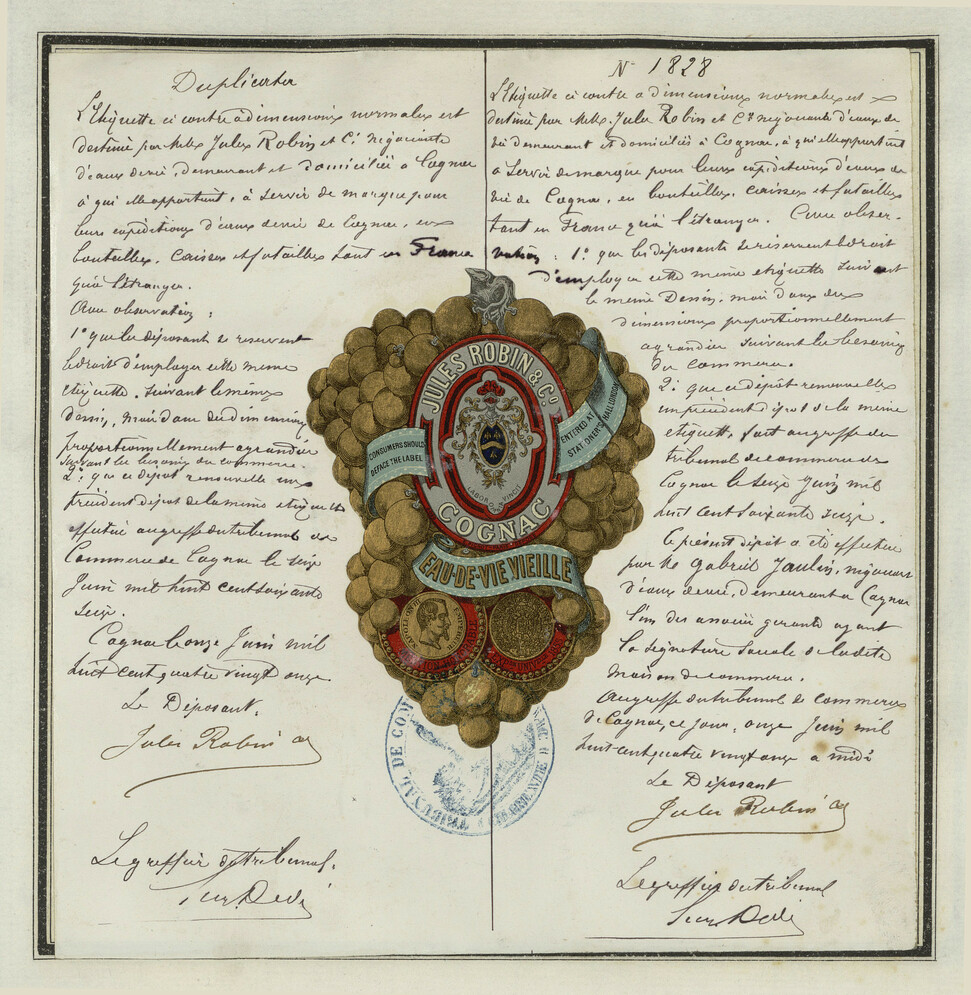 Duplicata
L'Etiquette ci contre à dimensions normales est
destinée par MMrs Jules Robin et Cie négociants
d'eaux devie, demeurant et domiciliés à Cognac
à qui elle appartient, à servir de marque pour
leurs expéditions d'eaux devie de Cognac, en
bouteilles, caisses et futailles tant en France
qu'à l'étranger.
Avec observation :
1° que les déposants se reservent
le droit d'employer cette meme
etiquette, suivant le même
dessin, mais dans des dimensions
proportionnellement agrandies
suivant les besoins du commerce.
2° que ce dépot renouvelle un
précédent dépot de la meme etiquette
effectué au greffe du tribunal de
Commerce de Cognac le seize
Juin mil huit cent soixante
seize.
Cognac le onze Juin mil
huit cent quatre vingt onze
Le Déposant,
Jules Robin Co
Le greffier du tribunal,
N° 1828
L'Etiquette ci contre a dimensions normales est
destinée par MMrs Jules Robin et Cie négociants d'eaux de
vie demeurant et domiciliés à Cognac, à qui elle appartient
à servir de marque pour leurs expéditions d'eaux de
vie de Cognac, en bouteilles, caisses et futailles
tant en France qu'à l'étranger. Avec obser-
vation : 1° que les déposants se réservent le droit
d'employer cette même etiquette suivant
le meme Dessin, mais dans des
dimensions proportionnellement
agrandies suivant les besoins
du commerce.
2° que ce dépot renouvelle
un précédent dépot de la meme
etiquette, fait au greffe du
tribunal de commerce de
Cognac le seize Juin mil
huit cent soixante seize.
Le présent dépot a été effectué
par Mr Gabriel Jaulin, négociant
d'eaux devie, demeurant a Cognac
l'un des associés gerants ayant
la signature sociale de la dite
maison de commerce.
Au greffe du tribunal de commerce
de Cognac, ce jour, onze Juin mil
huit cent quatre vingt onze a midi
Le Déposant
Jules Robin Co
Le greffier du tribunal
JULES ROBIN & Co
COGNAC
LABORE VINCIT
CONSUMERS SHOULD
DEFACE THE LABEL
ENTERED AT
STATIONER'S HALL LONDON
EAU-DE-VIE VIEILLE
TRIBUNAL DE COM